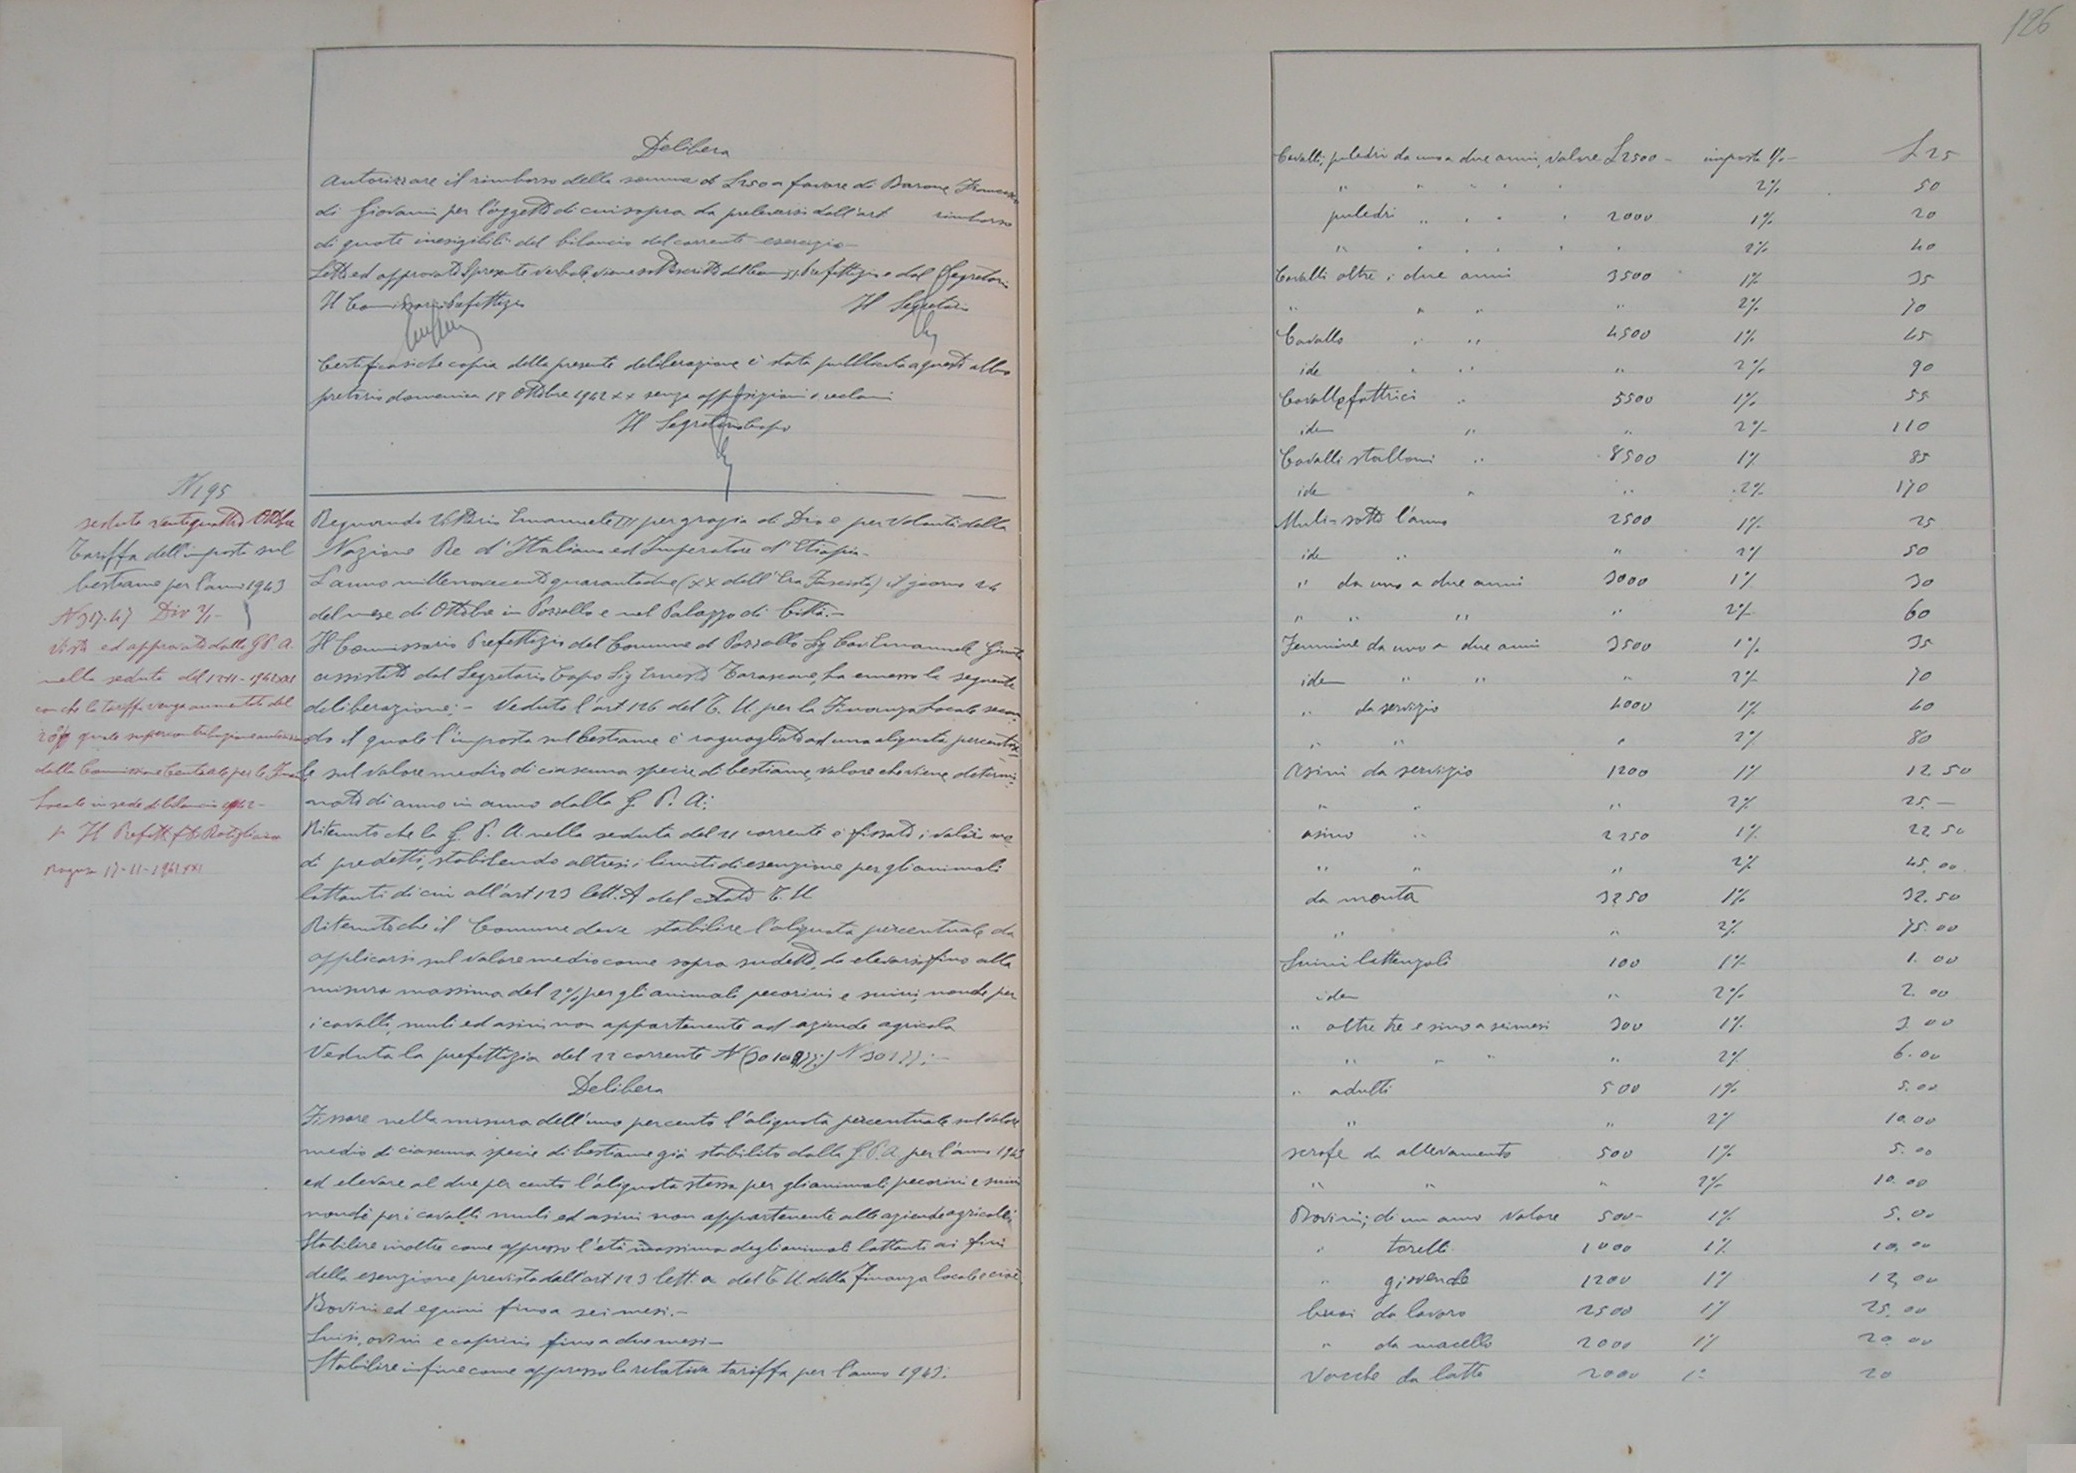 Delibera
Autorizzare il rimborso della somma di L 250 a favore di Barone Francesco
di Giovanni per l'oggetto di cui sopra da prelevarsi dall'art rimborso
di quote inesigibili del bilancio del corrente esercizio -
Letto ed approvato il presente verbale, viene sottoscritto dal Comm. Prefettizio e dal Segretario
Il Commissario Prefettizio Il Segretario
Certificasi che copia della presente deliberazione è stata pubblicata a questo albo
pretorio domenica 18 Ottobre 1942 XX senza opposizioni o reclami
Il Segretario Capo
N 195
seduta ventiquattro Ottobre
Tariffa dell'imposta sul
bestiame per l'anno 1943
N 317.47 Div 2/1-
Vista ed approvata dalla G.P.A.
nella seduta del 1942 XXI
con che la tariffa venga aumentata del
quale supercontribuzione
dalla Commissione Centrale per la
Locale in sede di bilancio 1942-
p Il Prefetto fto
Ragusa 17-11-1942 XXI
Regnando Vittorio Emanuele III per grazia di Dio e per Volontà della
Nazione Re d'Italia ed Imperatore d'Etiopia -
L'anno millenovecentoquarantadue (XX dell'Era Fascista) il giorno 24
del mese di Ottobre in Pozzallo e nel Palazzo di Città. -
Il Commissario Prefettizio del Comune di Pozzallo Sig Cav Emanuele
assistito dal Segretario Capo Sig Ernesto Tarascone, ha emesso la seguente
deliberazione: - Veduto l'art 126 del T. U. per la Finanza Locale secon-
do il quale l'imposta sul bestiame è ragguagliata ad una aliquota percentua-
le sul valore medio di ciascuna specie di bestiame, valore che viene determi-
nato di anno in anno dalla G. P. A:
Ritenuto che la G. P. A. nella seduta del 21 corrente à fissato i valori me
di predetti, stabilendo altresì i limiti di esenzione per gli animali
lattanti di cui all'art 123 lett. A del citato T. U
Ritenuto che il Comune deve stabilire l'aliquota percentuale da
applicarsi sul valore medio come sopra sudetto, da elevarsi fino alla
misura massima del 2% per gli animali pecorini e suini, nonchè per
i cavalli, muli ed asini non appartenente ad aziende agricola
Veduta la prefettizia del 22 corrente N
Delibera
Fissare nella misura dell'uno percento l'aliquota percentuale sul valore
medio di ciascuna specie di bestiame già stabilito dalla G.P.A. per l'anno 1943
ed elevare al due per cento l'aliquota stessa per gli animali pecorini e suini
nonchè per i cavalli muli ed asini non appartenente alle aziende agricole;
Stabilire inoltre come appresso l'età massima degli animali lattanti ai fini
della esenzione prevista dall'art 123 lett a del T. U. della Finanza locale e cioè
Bovini ed equini fino a sei mesi. -
Suini, ovini e caprini fino a due mesi -
Stabilire infine come appresso la relativa tariffa per l'anno 1943:
126
Cavalli; puledri da uno a due anni, valore L 2500 - imposta 1% - L 25
" " " " " 2% 50
puledri " " " " 2000 1% 20
" " " " " 2% 40
Cavalli oltre i due anni 3500 1% 35
" " " " 2% 70
Cavallo " " 4500 1% 45
ide " " " 2% 90
Cavalle fattrici " 5500 1% 55
idem " " 2% 110
Cavalli stalloni " 8500 1% 85
ide " " 2% 170
Muli - sotto l'anno 2500 1% 25
ide " " 2% 50
" da uno a due anni 3000 1% 30
" " " " 2% 60
Femmine da uno a due anni 3500 1% 35
idem " " " 2% 70
" da servizio 4000 1% 40
" " " 2% 80
Asini da servizio 1200 1% 12.50
" " " 2% 25. -
asino " 2250 1% 22.50
" " " 2% 45.00
da monta 3250 1% 32.50
" " 2% 75.00
Suini lattenzoli 100 1% 1.00
idem " 2% 2.00
" oltre tre e sino a sei mesi 300 1% 3.00
" " " " 2% 6.00
" adulti 500 1% 5.00
" " 2% 10.00
scrofe da allevamento 500 1% 5.00
" " " 2% 10.00
Bovini; di un anno Valore 500- 1% 5.00
" torelli 1000 1% 10,00
" giovenche 1200 1% 12,00
buoi da lavoro 2500 1% 25.00
" da macello 2000 1% 20.00
Vacche da latte 2000 1% 20